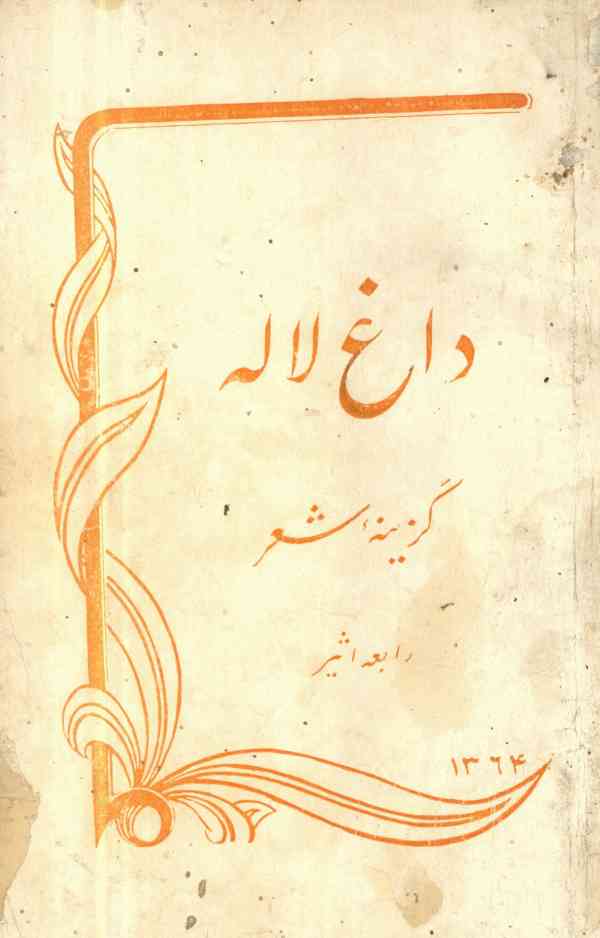 داغ لاله
گزینهٔ شعر
رابعه اثیر
۱۳۶۴